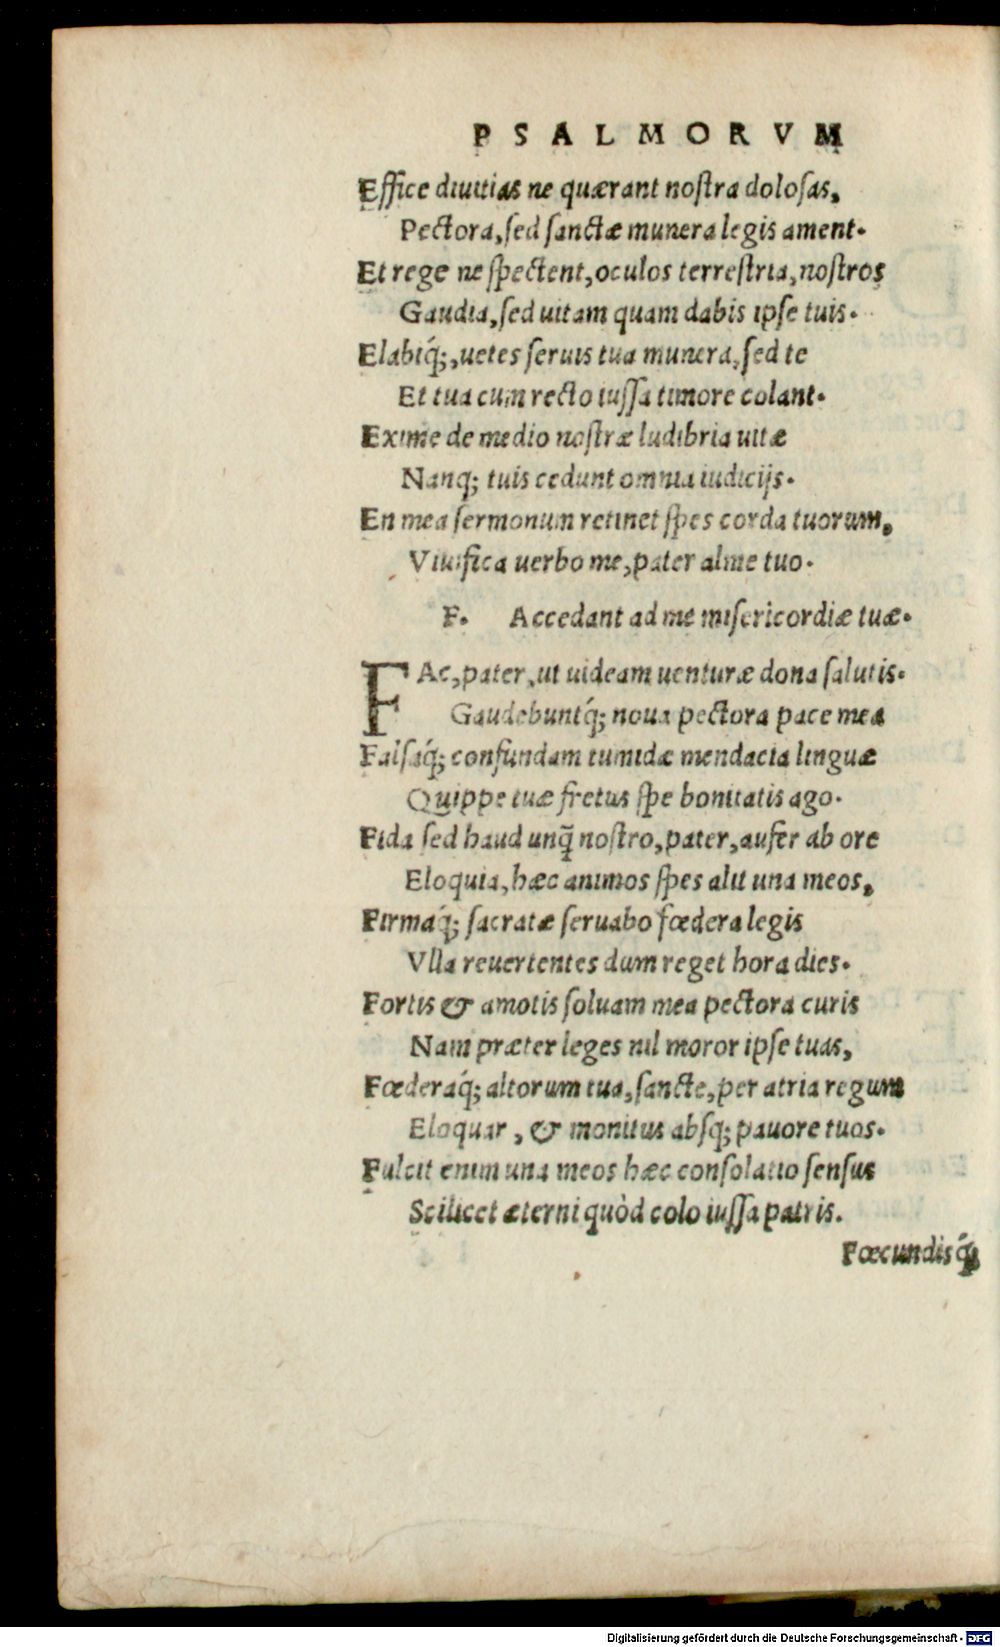 PSALMORVM
Effice diuitias ne quærant nostra dolosas,
Pectora, sed sanctæ munera legis ament.
Et rege ne spectent, oculos terrestria, nostros
Gaudia, sed uitam quam dabis ipse tuis.
Elabiq́;, uetes seruis tua munera, sed te
Et tua cum recto iussa timore colant.
Exime de medio nostræ ludibria uitæ
Nanq; tuis cedunt omnia iudicijs.
En mea sermonum retinet spes corda tuorum,
Viuifica uerbo me, pater alme tuo.
F. Accedant ad me misericordiæ tuæ.
FAc, pater, ut uideam uenturæ dona salutis.
Gaudebuntq́; noua pectora pace mea
Falsaq́; confundam tumidæ mendacia linguæ
Quippe tuæ fretus spe bonitatis ago.
Fida sed haud unq̃ nostro, pater, aufer ab ore
Eloquia, hæc animos spes alit una meos,
Firmaq́; sacratæ seruabo fœdera legis
Vlla reuertentes dum reget hora dies.
Fortis & amotis soluam mea pectora curis
Nam præter leges nil moror ipse tuas,
Fœderaq́; altorum tua, sancte, per atria regum
Eloquar, & monitus absq; pauore tuos.
Fulcit enim una meos hæc consolatio sensus
Scilicet æterni quòd colo iussa patris.
Fœcundisq́;
Digitalisierung gefördert durch die Deutsche Forschungsgemeinschaft - DFG